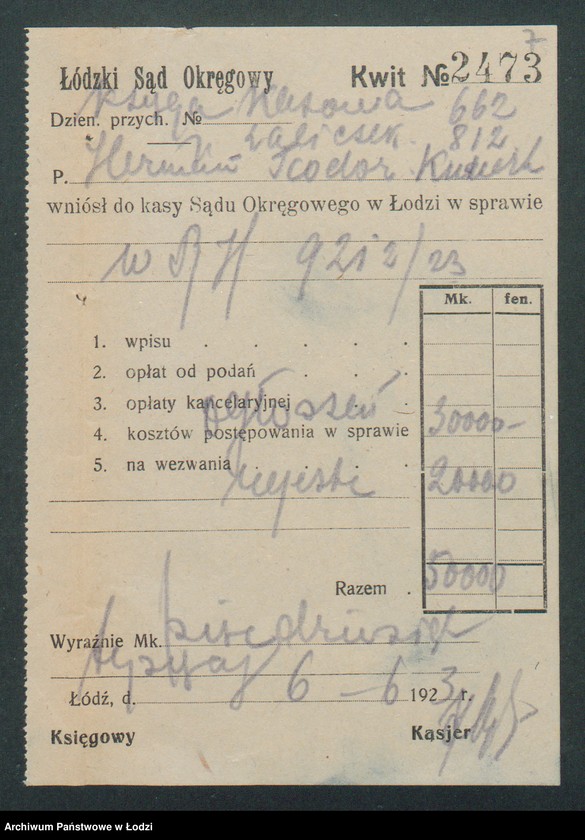 7
Łódzki Sąd Okręgowy Kwit № 2473
Księga Kasowa 662
Dzien. przych. №
zaliczek. 812
P. Herman Teodor
wniósł do kasy Sądu Okręgowego w Łodzi w sprawie
w RH 9212/23
Mk. fen.
1. wpisu . . . .
2. opłat od podań . . .
3. opłaty kancelaryjnej .
ogłoszeń 30000-
4. kosztów postępowania w sprawie
5. na wezwania . . . .
rejestr 20000
Razem . 50000
Wyraźnie Mk. pięćdziesiąt
tysięcy
Łódź, d. 6 - 6 1923 r.
Księgowy Kasjer
Archiwum Państwowe w Łodzi